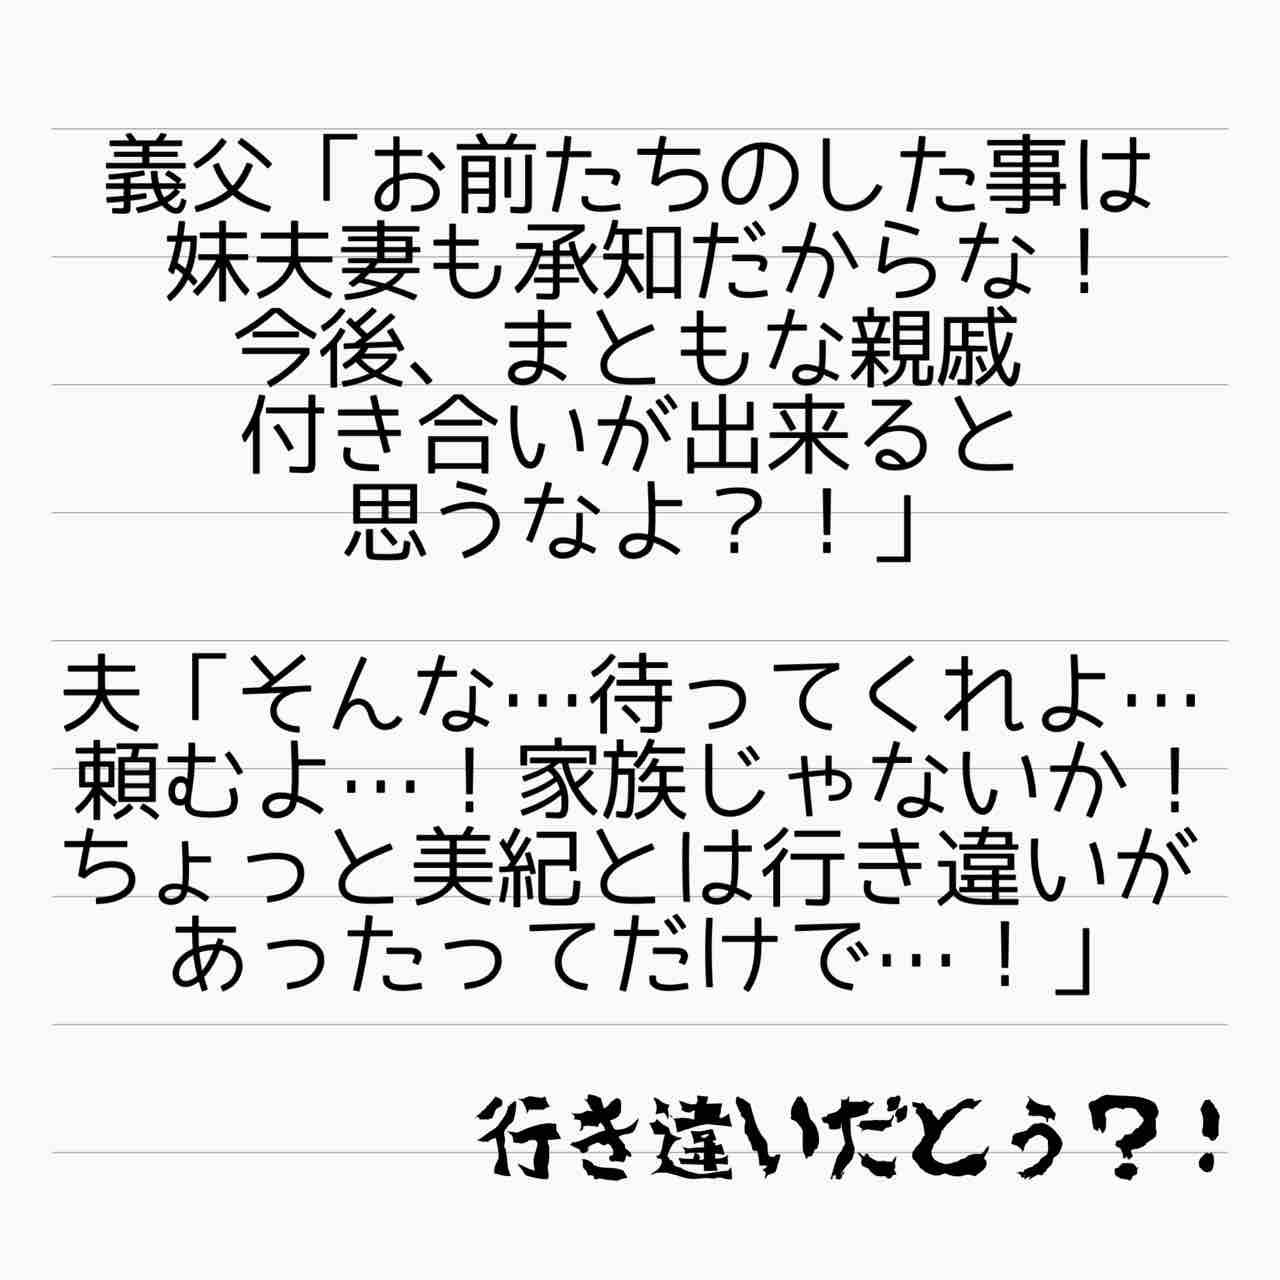 義父「お前たちのした事は
妹夫妻も承知だからな！
今後、まともな親戚
付き合いが出来ると
思うなよ？！」
夫「そんな…待ってくれよ…
頼むよ…！家族じゃないか！
ちょっと美紀とは行き違いが
あったってだけで…！」
行き違いだとぅ？！